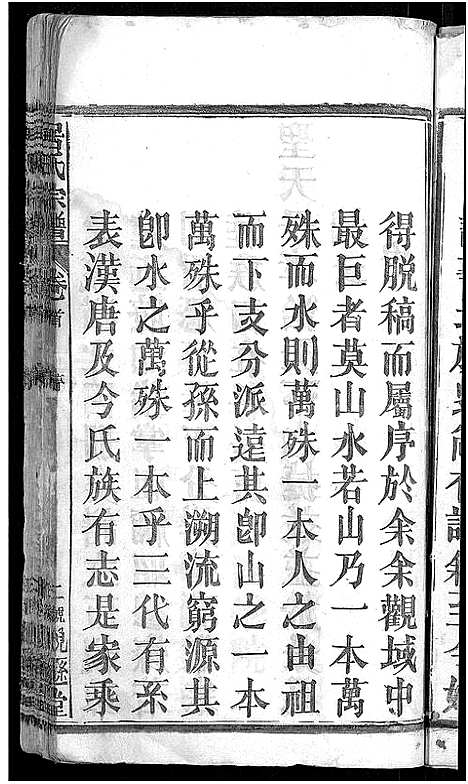 得脫稿而屬序於余余觀域中
最巨者莫山水若山乃一本萬
殊而水則萬殊一本人之由祖
而下支分派遠其卽山之一本
萬殊乎從孫而上溯流窮源其
卽水之萬殊一本乎三代有系
表漢唐及今氏族有志是家乘
氏宗譜 卷首